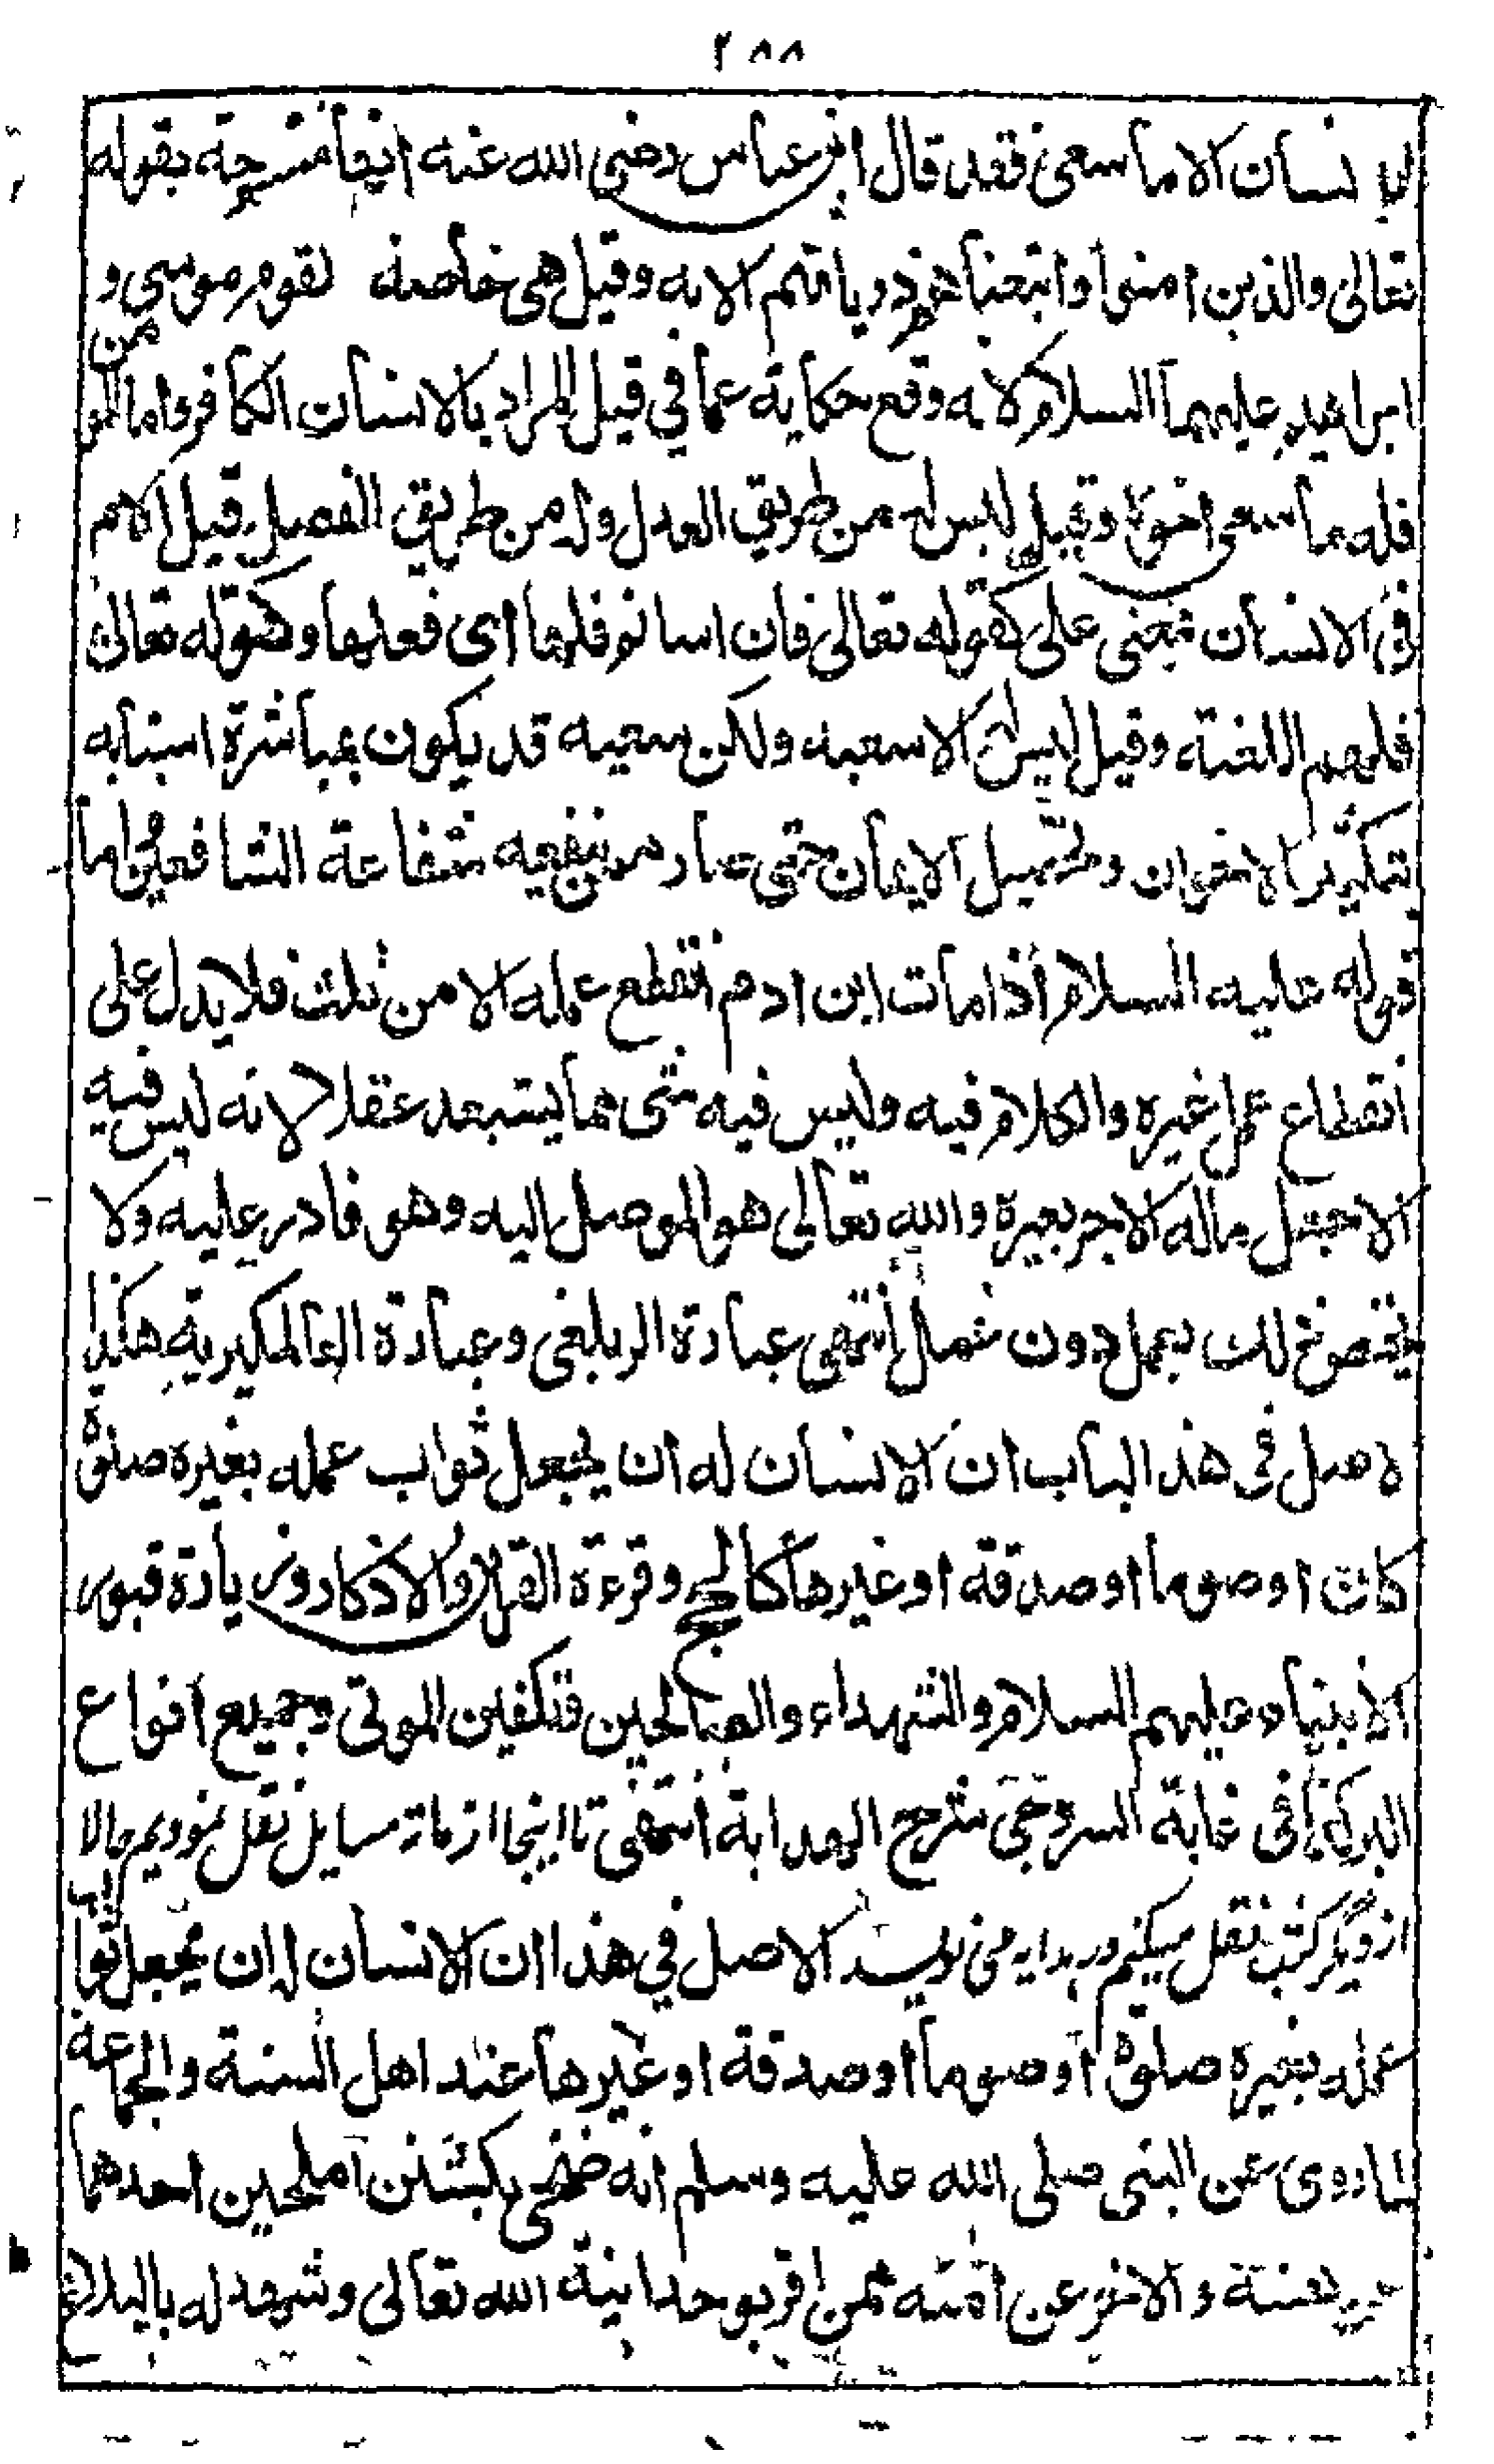 ٢٨٨
للانسان الا ما سعى فقد قال ابن عباس رضى الله عنه انها منسوخة بقوله
تعالى والذين امنوا واتبعناهم ذرياتهم الايه وقيل هى خاصة لقوم موسى و
ابراهيم عليهما السلام لانه وقع حكاية عما في قيل المراد بالانسان الكافر واما المومن
فله ما سعى اخوه وقيل ليس له من طريق العدل وله من طريق الفضل قيل الام
فى الانسان بمعنى على كقوله تعالى فان اساتم فلها اى فعليها وكقوله تعالى
فلهم اللعنة وقيل ليس له الا سعيه ولكن سعيه قد يكون بمباشرة اسبابه
بتكثير الاخوان وتحصيل الايمان حتى صار ممن ينفعه شفاعة الشافعين اما
قوله عليه السلام اذا مات ابن ادم انقطع عمله الا من ثلث فلا يدل على
انقطاع عمل غيره والكلام فيه وليس فيه شى مما يستبعد عقلا لانه ليس فيه
الا جعل ماله الاجر بغيره والله تعالى هو الموصل اليه وهو قادر عليه ولا
يختص ذلك بعمل دون عمل انتهى عبارة الزيلعى وعبارة العالمكيرية هكذا
لاصل فى هذا الباب ان الانسان له ان يجعل ثواب عمله بغيره صلوة
كان او صوما او صدقة او غيرها كالحج وقرءة القران والاذكار وزيارة قبور
الانبياء عليهم السلام والشهداء والصالحين وتكفين الموتى وجميع انواع
البر كذا فى غاية السروجى شرح الهداية انتهى تا اينجا از مائة مسايل نقل نموديم حالا
از ديگر كتب نقل ميكنم در هدايه مى نويسد الاصل في هذا ان الانسان له ان يجعل ثواب
عمله بغيره صلوة او صوما او صدقة او غيرها عند اهل السنة والجماعة
لما روى عن النبى صلى الله عليه وسلم انه ضحى بكبشين املحين احدهما
عن نفسه والاخر عن امته ممن اقر بوحدانية الله تعالى وشهد له بالبلاغ